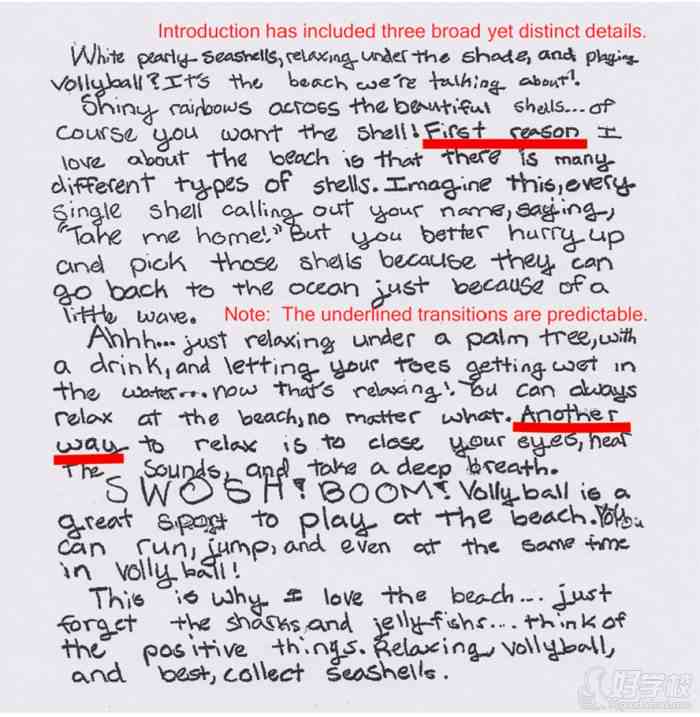 Introduction has included three broad yet distinct details.
White pearly seashells, relaxing under the shade, and playing
vollyball? It's the beach we're talking about!
Shiny rainbows across the beautiful shells... of
course you want the shell! First reason I
love about the beach is that there is many
different types of shells. Imagine this, every
single shell calling out your name, saying,
"Take me home!" But you better hurry up
and pick those shells because they can
go back to the ocean just because of a
little wave.
Note: The underlined transitions are predictable.
Ahhh... just relaxing under a palm tree, with
a drink, and letting your toes getting wet in
the water... now that's relaxing! You can always
relax at the beach, no matter what. Another
way to relax is to close your eyes, hear
the sounds, and take a deep breath.
SWOSH! BOOM! Vollyball is a
great sport to play at the beach. You
can run, jump, and even at the same time
in volly ball!
This is why I love the beach... just
forget the sharks and jellyfishs... think of
the positive things. Relaxing, vollyball,
and best, collect seashells.
好学校